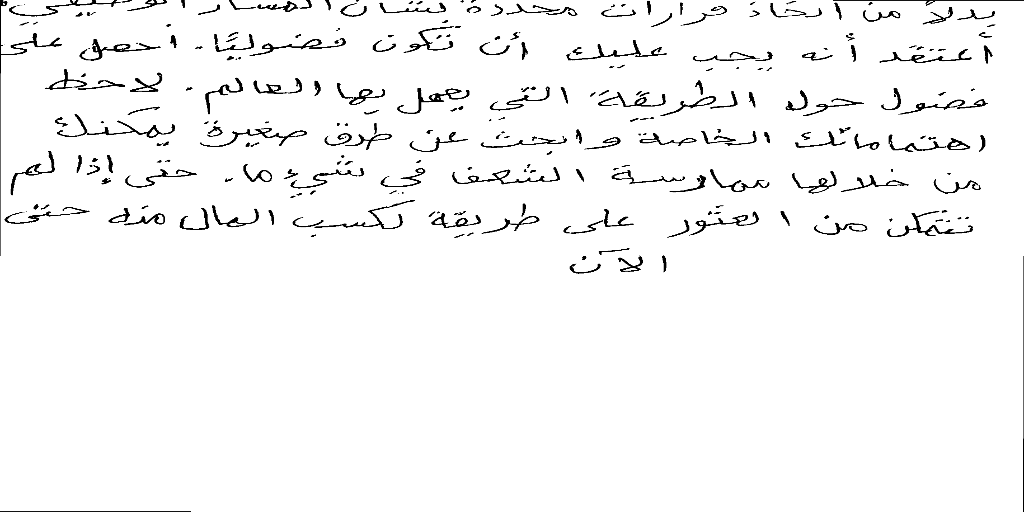 بدلاً من اتخاذ قرارات محددة بشأن المسار الوظيفي،
أعتقد أنه يجب عليك أن تكون فضوليًا. احصل على
فضول حول الطريقة التي يعمل بها العالم. لاحظ
اهتماماتك الخاصة وابحث عن طرق صغيرة يمكنك
من خلالها ممارسة الشغف في شيء ما. حتى إذا لم
تتمكن من العثور على طريقة لكسب المال منه حتى
الآن